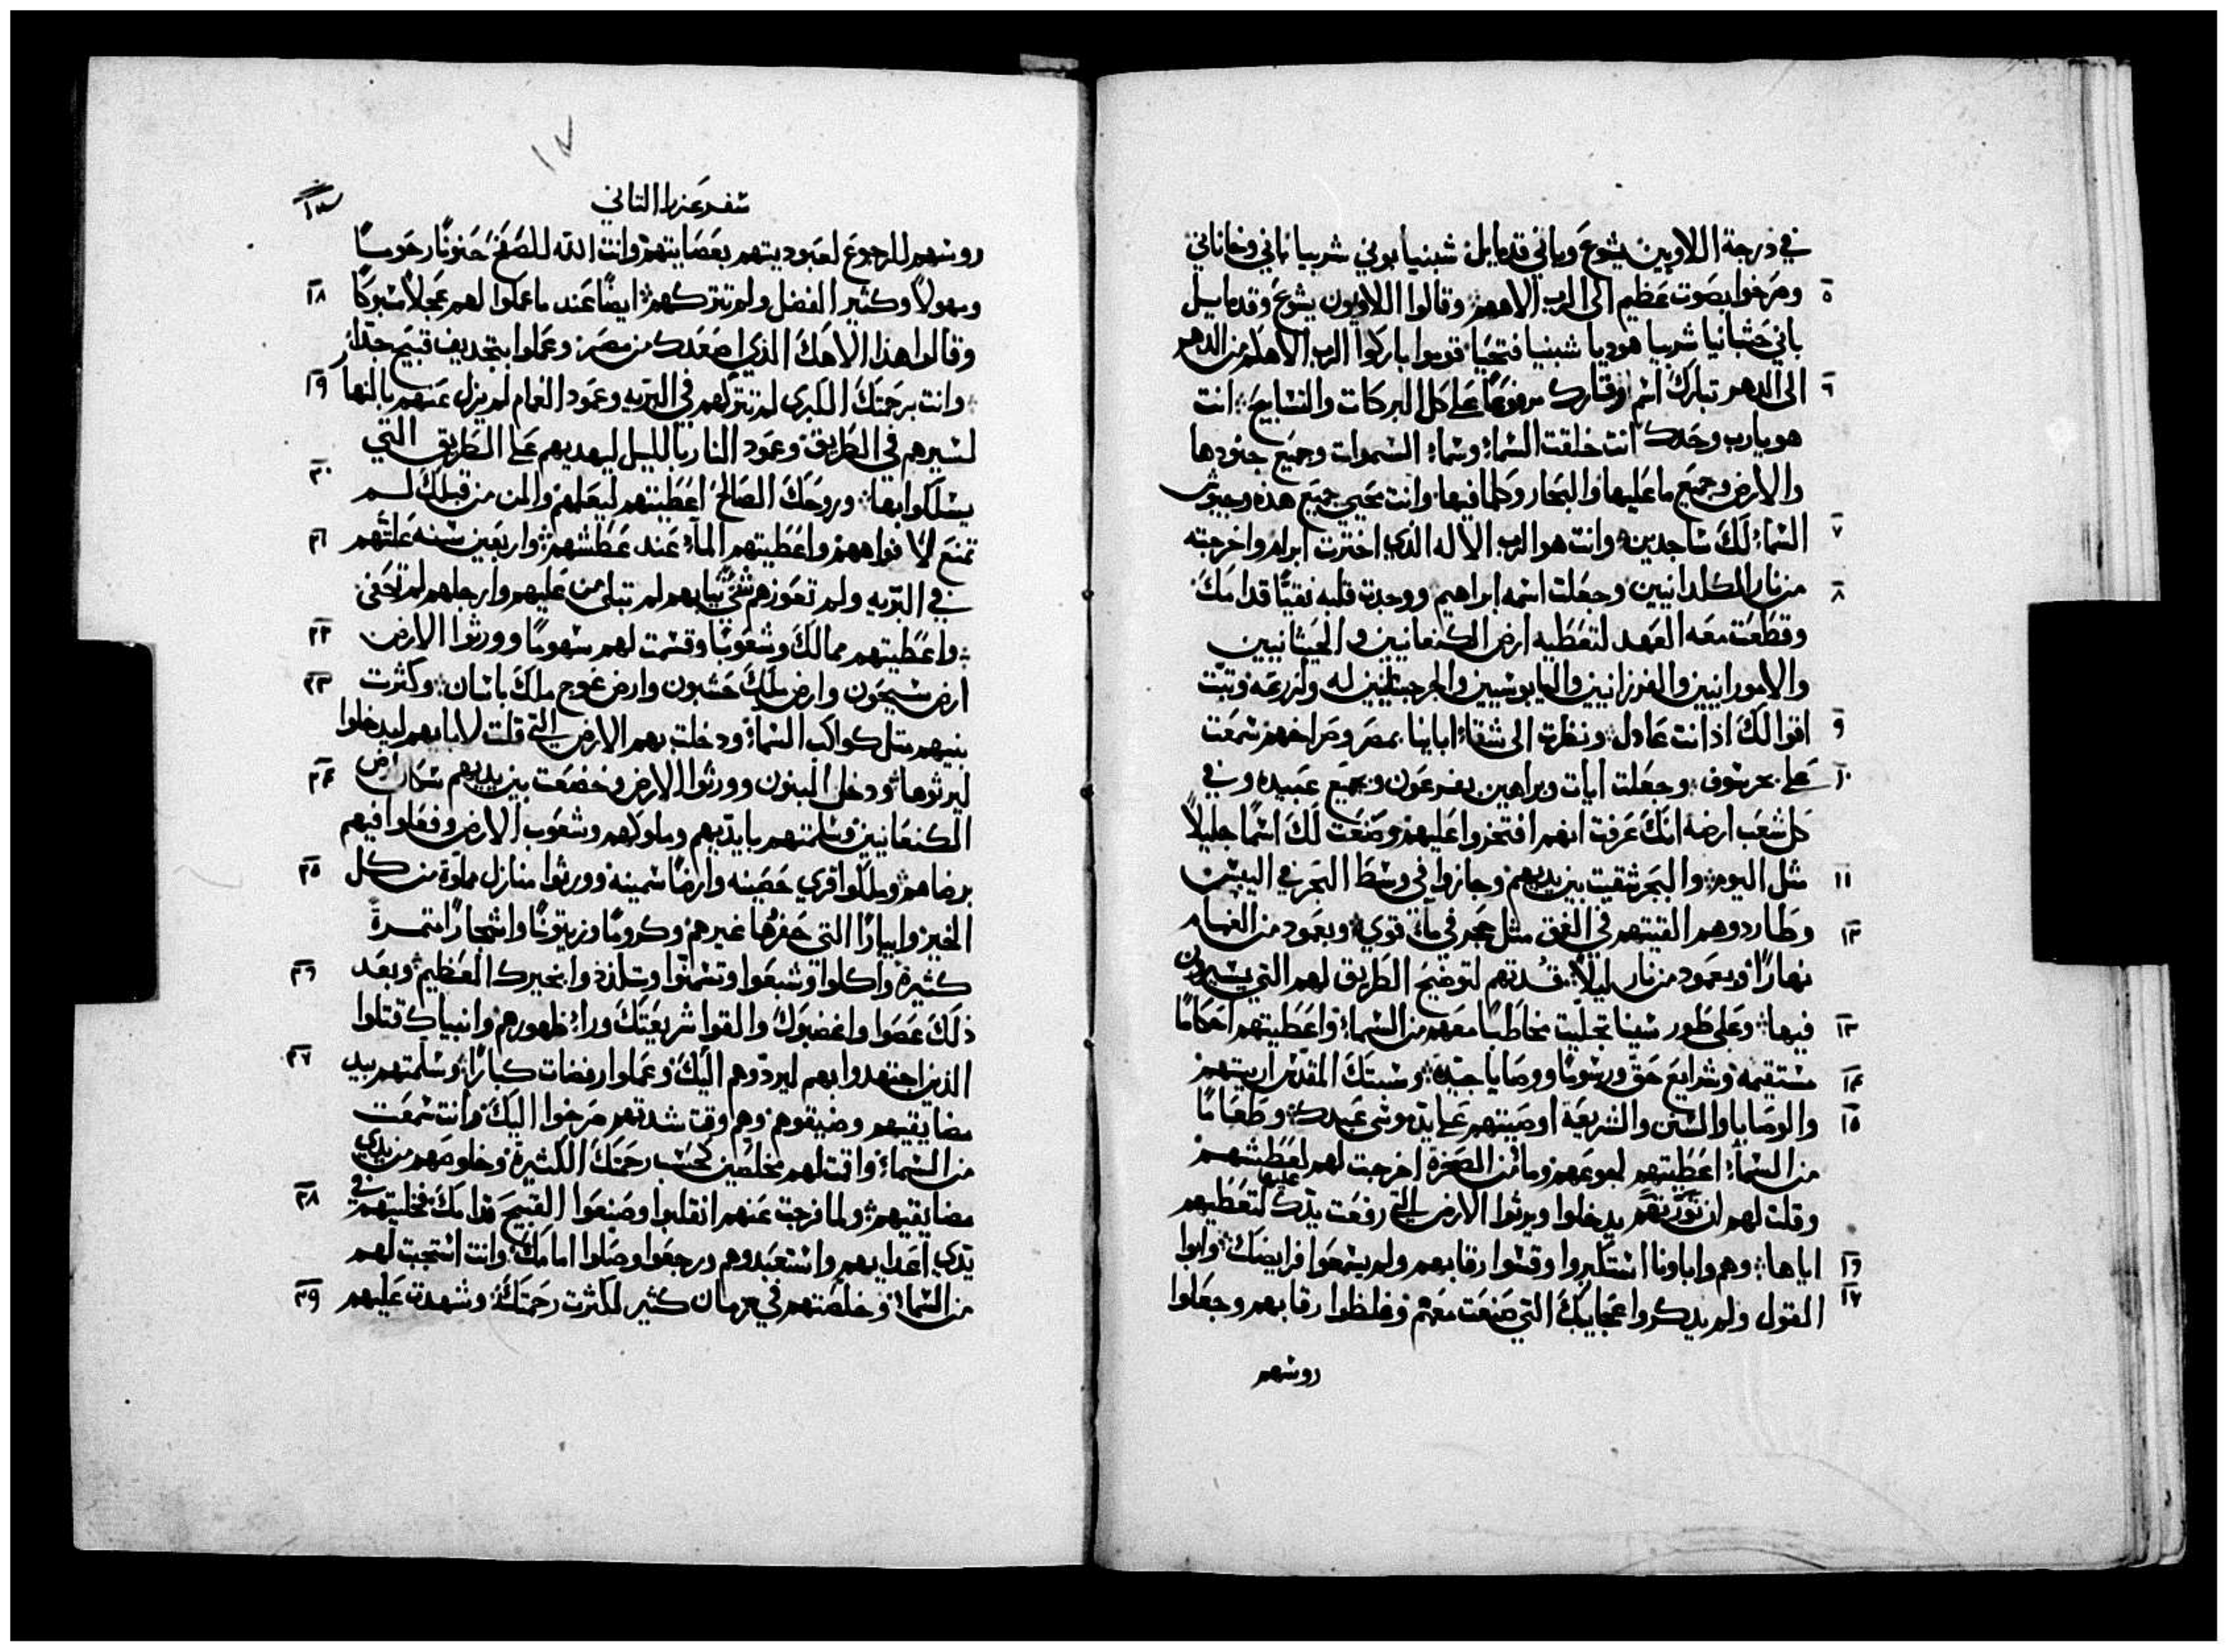 في درجة اللاويين يشوع وباني قدمايل شبنيا بوني شربيا باني وخاناني
٥ وصرخوا بصوت عظيم الى الرب الاههم وقالوا اللاويون يشوع وقدمايل
باني حشبانيا شربيا هوديا شبنيا فتحيا قوموا باركوا الرب الاهكم من الدهر
٦ الى الدهر تبارك اسم وقارك مرفوعًا على كل البركات والتسابيح انت
هو يارب وحدك انت خلقت السماء وسماء السموات وجميع جنودها
والارض وجميع ما عليها والبحار وكلما فيها وانت تحيي جميع هذه وجيوش
٧ السماء لك ساجدين وانت هو الرب الاله الذي اخترت ابرام واخرجته
٨ من نار الكلدانيين وجعلت اسمه ابراهيم ووجدت قلبه نقيًا قدامك
وقطعت معه العهد لتعطيه ارض الكنعانيين والحيثانيين
والامورانيين والفرزانيين واليابوسيين والجرجسانيين له ولزرعه وثبّت
٩ اقوالك اذ انت عادل ونظرت الى شقاء اباينا بمصر وصراخهم سمعت
١٠ على بحر سوف وجعلت ايات وبراهين بفرعون وبجميع عبيده وفي
كل شعب ارضه انك عرفت انهم افتخروا عليهم وصنعت لك اسمًا جليلاً
١١ مثل اليوم والبحر شقيت بين يديهم وجازوا في وسط البحر في اليبس
١٢ وطاردوهم القيتهم في الغرق مثل حجر في ماء قوي وبعمود من الغمام
نهارًا وبعمود من نار ليلاً قدتهم لتوضيح الطريق لهم التي يسيرون
١٣ فيها وعلى طور سينا تجليت مخاطبًا معهم من السماء واعطيتهم احكامًا
١٤ مستقيمه وشرايع حق ورسومًا ووصايا جيدة وسبتك المقدس اريتهم
١٥ والوصايا والسنن والشريعة اوصيتهم على يد موسى عبدك وطعامًا
من السماء اعطيتهم لجوعهم وماء من الصخرة اخرجت لهم لعطشهم
وقلت لهم ان يدخلوا ويرثوا الارض التي رفعت يدك عليها لتعطيهم
١٦ اياها وهم واباونا استكبروا وقسوا رقابهم ولم يسمعوا فرايضك وابوا
١٧ القول ولم يدكروا عجايبك التي صنعت معهم وغلظوا رقابهم وجعلوا
روسهم
١٧
سفر عزرا التاني
روسهم للرجوع لعبوديتهم بعصايتهم وانت الله للصفح حنونًا رحومًا
١٨ ومهولاً وكثير الفضل ولم تتركهم ايضًا عند ما عملوا لهم عجلاً مسبوكًا
وقالوا هذا الاهك الذي اصعدك من مصر وعملوا بتجديف قبيح جدًا
١٩ وانت برحمتك الكبرى لم تتركهم في البريه وعمود الغمام لم يزل عنهم بالنهار
لسيرهم في الطريق وعمود النار بالليل ليهديهم على الطريق التي
٢٠ يسلكوا بها وروحك الصالح اعطيتهم ليعلمهم والمن من قبلك لم
٢١ تمنع لافواههم واعطيتهم الماء عند عطشهم واربعين سنه علتهم
في البريه ولم تعوزهم شي ثيابهم لم تبلى من عليهم وارجلهم لم تحفى
٢٢ واعطيتهم ممالك وشعوبًا وقسمت لهم سهومًا وورثوا الارض
٢٣ ارض سيحون وارض ملك حشبون وارض عوج ملك باسان وكثرت
بنيهم متل كواكب السماء ودخلت بهم الارض التي قلت لابايهم ليدخلوا
٢٤ ليرثوها ودخل البنون وورثوا الارض وخضعت بين يديهم سكان ارض
الكنعانيين وسلمتهم بايديهم وملوكهم وشعوب الارض وفعلوا فيهم
٢٥ برضاهم وملكوا قري حصينه وارضًا سمينه وورثوا منازل مملوة من كل
الخير وابيارًا التي حفرها غيرهم وكرومًا وزيتونًا واشجارًا متمرة
٢٦ كثيرة واكلوا وشبعوا وتسمنوا وتلذذوا بخيرك العظيم وبعد
ذلك عصوا واغضبوك والقوا شريعتك وراء ظهورهم وانبياك قتلوا
٢٧ الذين اجتهدوا بهم ليردّوهم اليك وعملوا رفضات كبارًا وسلمتهم بيد
مضايقيهم وضيقوهم وهم وقت شدتهم صرخوا اليك وانت سمعت
من السماء واقمت لهم مخلصين كحسب رحمتك الكثيرة وخلوصهم من يدي
٢٨ مضايقيهم ولما فرجت عنهم انقلبوا وصنعوا القبيح قدامك فخليتهم في
يدي اعدايهم واستعبدوهم ورجعوا وصلوا امامك وانت استجبت لهم
٢٩ من السماء وخلصتهم في زمان كثير لكثرت رحمتك وشهدت عليهم